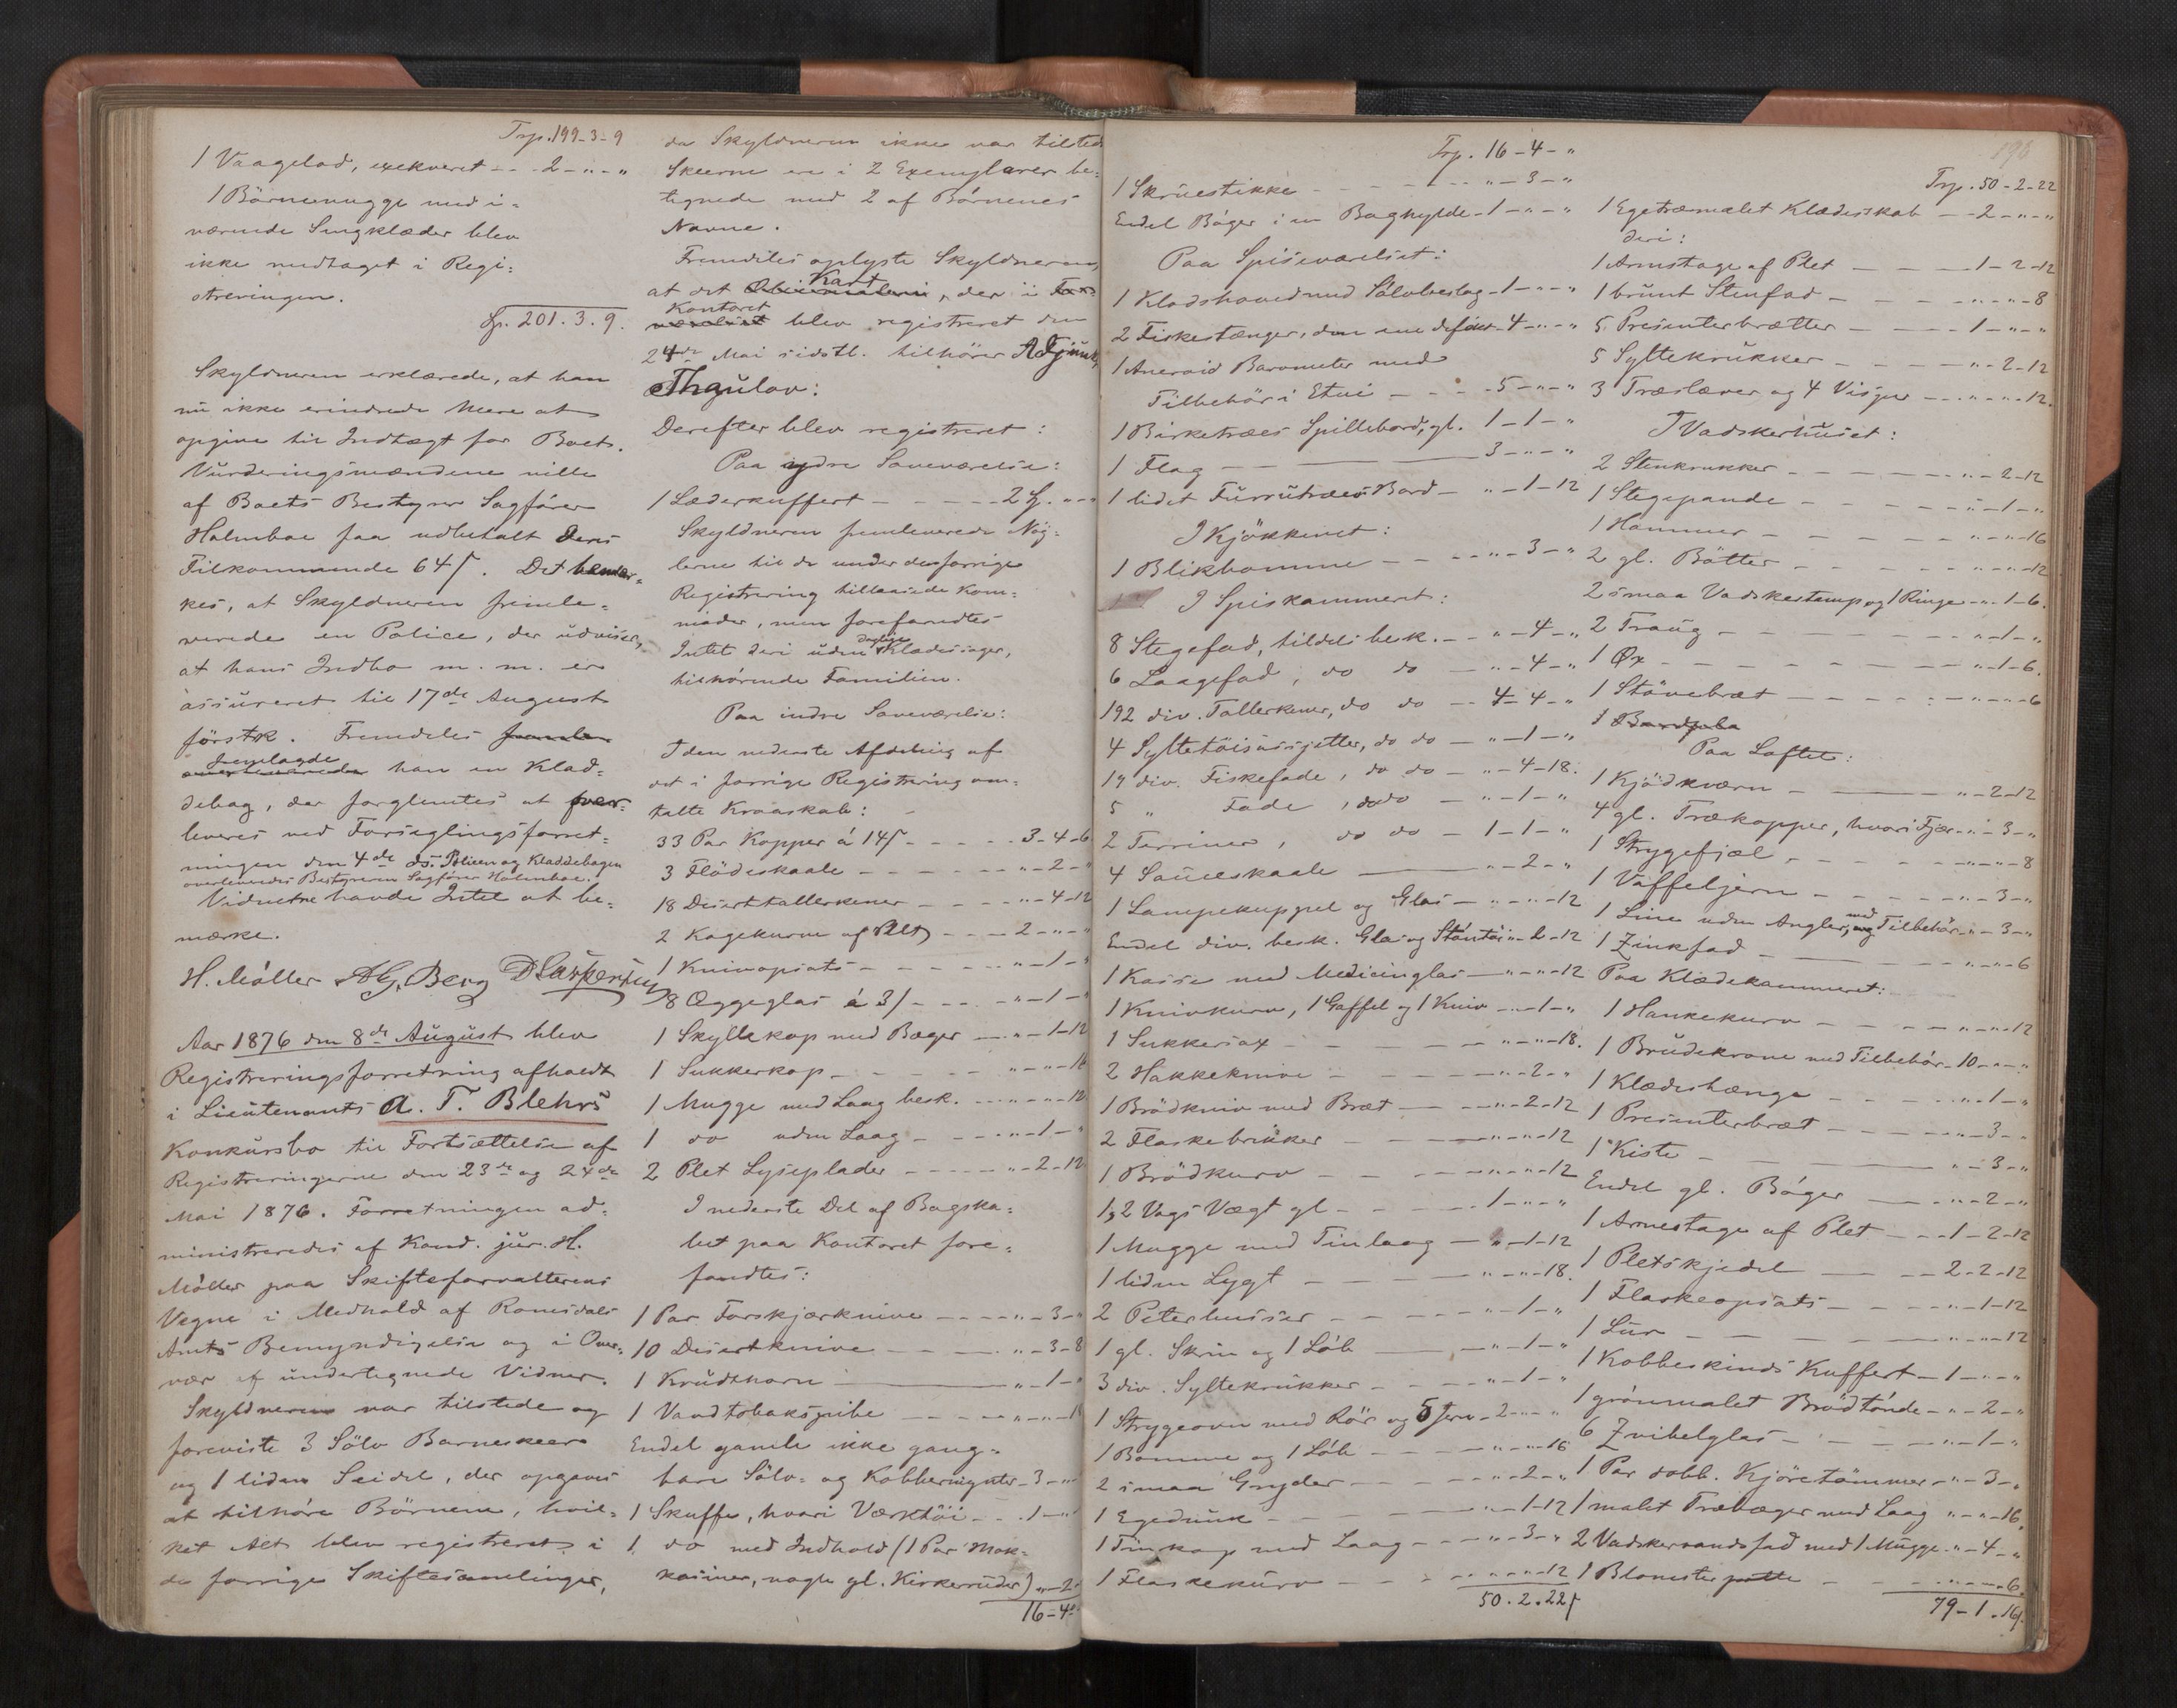 Trp. 199-3-9
1 Vaagelod, exekveret - - 2 - " - "
1 Börnevugge med i=
værende Sengklæder blev
ikke medtaget i Regi=
streringen.
Sp. 201. 3. 9.
Skyldneren erklærede, at han
nu ikke erindrede Mere at
opgive til Indtægt for Boet.
Vurderingsmændene ville
af Boets Bestyrer Sagförer
Holmboe faa udbetalt deres
Tilkommende 64 ſ. Det bemær=
kes, at Skyldneren fremle=
verede en Police, der udviser,
at hans Indbo m. m. er
assureret til 17de August
förstk. Fremdeles
fremlagde han en Klad=
debog, der forglemtes at over=
leveres ved Forseglingsforret=
ningen den 4de ds. Policen og Kladdebogen
overleveredes Bestyreren Sagförer Holmboe.
Vidnerne havde Intet at be=
mærke.
H. Möller A G. Berg
Aar 1876 den 8de August blev
Registreringsforretning afholdt
i Lieutenants A. T. Blehrs
Konkursbo til Fortsættelse af
Registreringerne den 23de og 24de
Mai 1876. Forretningen ad=
ministreredes af Kand. jur. H.
Möller paa Skifteforvalterens
Vegne i Medhold af Romsdals
Amts Bemyndigelse og i Over=
vær af undertegnede Vidner.
Skyldneren var tilstede og
foreviste 3 Sölv Barneskeer
og 1 liden Seidel, der opgaves
at tilhöre Börnene, hvil=
ket Alt blev registreret i
de forrige Skiftesamlinger,
da Skyldneren ikke var tilsted
Skeerne ere i 2 Exemplarer be=
tegnede med 2 af Börnenes
Navne.
Fremdeles oplyste Skyldneren,
at det Kart, der i
Kontoret blev registreret den
24de Mai sidstl. tilhörer Adjunkt
Thaulov:
Derefter blev registreret:
Paa ydre Soveværelse:
1 Læderkuffert - - - - - 2 Sp. " - "
Skyldneren fremleverede Nög=
lerne til de under den forrige
Registrering tillaasede Kom=
moder, men forefandtes
Intet deri uden daglige Klædessager,
tilhörende Familien.
Paa indre Soveværelse:
I den nederste Afdeling af
det i forrige Registrering om=
talte Kroaskab:
33 Par Kopper á 14 ſ - - - - - 3-4-6
3 Flödeskaale - - - - - - " - 2 - "
18 Deserttallerkener - - - - " - 4-12
2 Kagekurve af Plet - - - 2 - " - "
1 Knivopsats - - - - - - " - 1 - "
8 Æggeglas á 3 ſ - - - - " - 1 - "
1 Skyllekop med Bæger - - - " - 1-12
1 Sukkerkop - - - - - " - " - 16
1 Mugge med Laag besk. - - - " - " - 12
1 do uden Laag - - - - " - 1 - "
2 Plet Lyseplader - - - - - " - 2-12
I nederste Del af Bogska=
bet paa Kontoret fore=
fandtes:
1 Par Forskjærknive - - - - " - 3 - "
10 Desertknive - - - - " - 3-8
1 Krudthorn - - - - " - 1 - "
1 Vandtobakspibe - - - - " - " - 1
Endel gamle ikke gang=
bare Sölv= og Kobbermynter - 3 - " - "
1 Skuffe, hvori Værktöi - - - 1 - " - "
1 do med Indhold (1 Par Mok=
kasiner, nogle gl. Kirkeruder) " - 2 - "
16-4-"
Trp. 16-4-"
1 Skruestikke - - - - - - - " - 3 - "
Endel Böger i en Boghylde - 1 - " - "
Paa Spiseværelset:
1 Klodshoved med Sölvbeslag - 1 - " - "
2 Fiskestænger, den ene defekt - 4 - " - "
1 Aneroid Barometer med
Tilbehör i Etui - - - - 5 - " - "
1 Birketræes Spillebord, gl. 1 - 1 - "
1 Flag - - - - 3 - " - "
1 lidet Furrutræes Bord - " - 1-12
I Kjökkenet:
1 Blikbomme - - - - " - 3 - "
I Spiskammeret:
8 Stegefad, tildels besk. - - " - 4 - "
6 Laagefad, do do - " - 4 - "
192 div. Tallerkener, do do - - 4-4 - "
4 Syltetöisassjetter, do do - " - 1 - "
14 div. Fiskefade, do do - " - 4-18.
5 " Fade, do do - " - 1 - "
2 Terriner, do do - 1 - 1 - "
4 Sauceskaale - - - " - 2 - "
1 Lampekuppel og Glas - " - " - 12
Endel div. besk. Glas og Stentöi " - 2-12
1 Kasse med Medicinglas - " - " - 12
1 Knivkurv, 1 Gaffel og 1 Kniv - " - 1 - "
1 Sukkersax - - - - " - " - 18.
2 Hakkeknive - - - - " - 2 - "
1 Brödkniv med Bræt - - - " - 2-12
2 Flaskebrikker - - - - " - " - 12
1 Brödkurv - - - - " - " - 12
1, 2 Vogs Vægt gl - - - - 1 - " - "
1 Mugge med Tinlaag - " - 1-12
1 liden Lygt - - - - " - " - 18.
2 Peterhusser - - - - " - 1 - "
1 gl. Skrin og 1 Löb - - - " - 1 - "
3 div. Syltekrukker - - - - " - 1 - "
1 Strygeovn med Rör og 5 Jern - 2 - " - "
1 Bomme og 1 Löb - - - - " - " - 16
2 smaa Gryder - - - - " - 2 - "
1 Egedunk - - - - " - 1-12
1 Tinkop med Laag - - - " - 3 - "
1 Flaskekurv - - - - " - " - 12
50. 2. 22 ſ
196
Trp. 50-2-22
1 Egetræmalet Klædesskab - - 2 - " - "
deri:
1 Armstage af Plet - - - 1 - 2-12
1 brunt Stenfad - - - - " - " - 8
5 Presenterbrætter - - - - 1 - " - "
5 Syltekrukker - - - - " - 2-12
3 Træslæver og 4 Visper - - " - " - 12.
I Vadskerhuset:
2 Stenkrukker - - - - " - 2-12
1 Stegepande - - - - " - 1 - "
1 Hammer - - - - " - " - 16
2 gl. Bötter - - - - " - " - 12
2 smaa Vadskestamp og 1 Ringe - " - 1-6.
2 Traug - - - - " - 1 - "
1 Øx - - - - " - 1-6.
1 Stövebræt - - - - " - " - 6
1
Paa Loftet:
1 Kjödkværn - - - - " - 2-12
4 gl. Trækopper, hvori Fjær - " - 3 - "
1 Strygefjæl - - - - " - " - 8
1 Vaffeljern - - - - " - 3 - "
1 Line uden Angler, med Tilbehör - " - 3 - "
1 Zinkfad - - - - " - " - 6
Paa Klædekammeret:
1 Hankekurv - - - - " - " - 12
1 Brudekrone med Tilbehör - 10 - " - "
1 Klædeshænge - - - - " - 1 - "
1 Presenterbræt - - - - " - 3 - "
1 Kiste - - - - " - 3 - "
Endel gl. Böger - - - - " - 2 - "
1 Armestage af Plet - - - 1 - 2-12
1 Pletskjedel - - - 2-2-12
1 Flaskeopsats - - - - " - 1-12
1 Lur - - - - " - " - 12
1 Kobbeskinds Kuffert - 1 - " - "
1 grönmalet Brödtönde - " - 2 - "
6 Zvibelglas - - - - " - 1 - "
1 Par dobb. Kjöretömmer - " - 3 - "
1 malet Træbæger med Laag " - " - 16.
2 Vadskevandsfad med 1 Mugge - " - 4 - "
1 Blomsterpotte - - - - " - " - 6.
79-1.16 ſ.